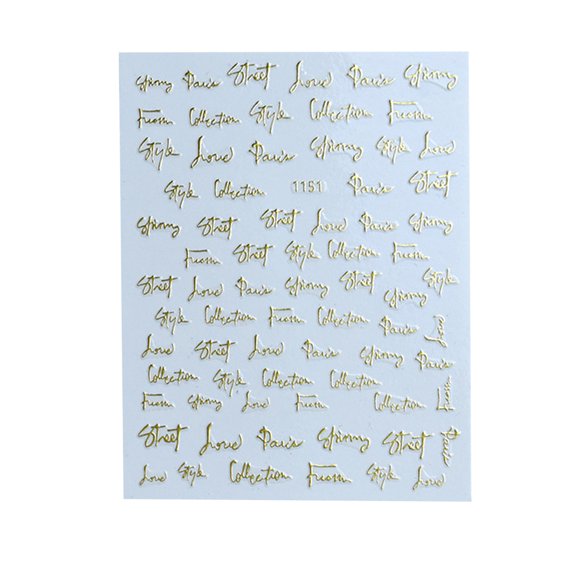 Spinmy Paris Street Loue Paris Spinmy
From Collection Style Collection From
Style Loue Paris Spinmy Style Loue
Style Collection 1151 Paris Street
Spinmy Street Street Loue Paris Spinmy
From Street Style Collection From
Street Loue Paris Spinmy Street Spinmy Style
Style Collection From Collection Paris Loue
Loue Street Loue Paris Spinmy Paris
Collection Style Collection Collection
From Spinmy Loue From Collection From
Street Loue Paris Spinmy Street Paris
Loue Style Collection From Style Loue